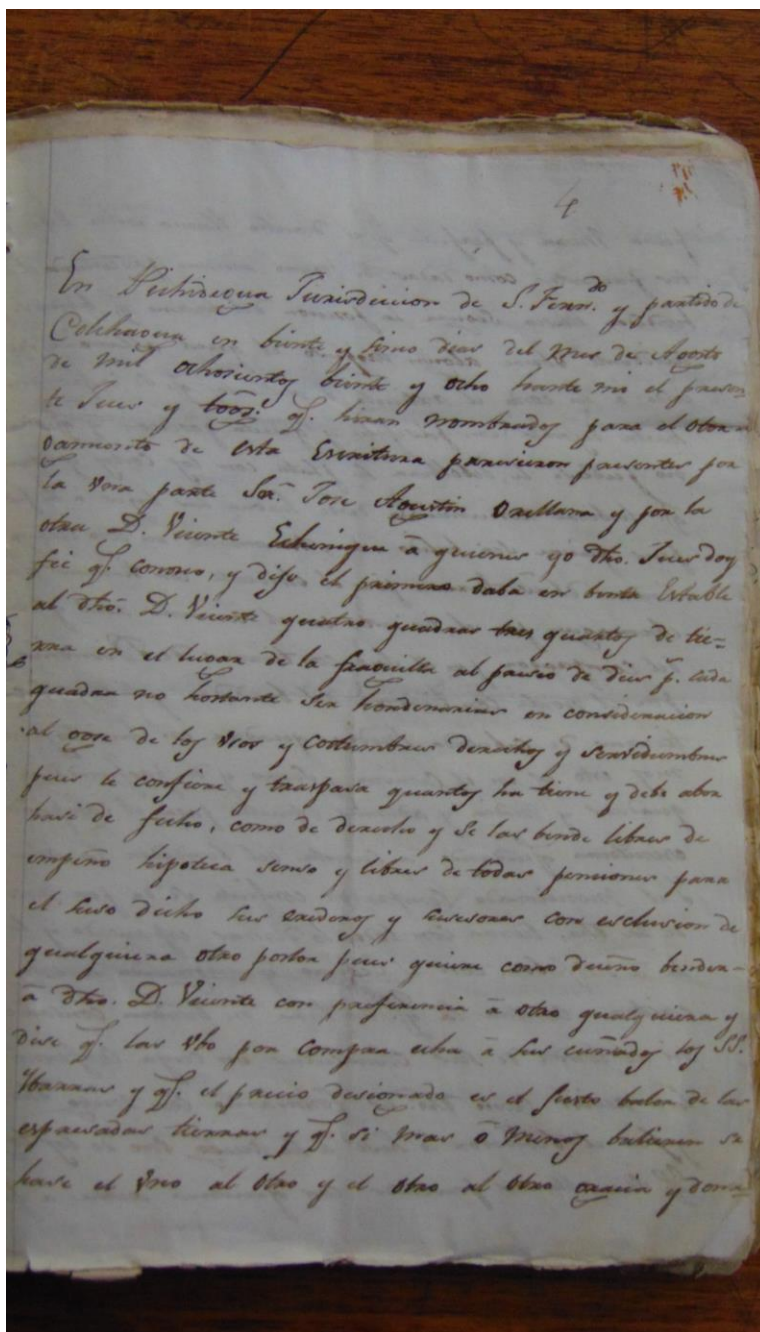 4
En Pichidegua Jurisdiccion de S. Fern.do y partido de
Colchagua en binte y sinco dias del mes de Agosto
de mil ochosientos binte y ocho hante mi el presen
te Jues y toõs. qe. hiran nombrados para el otor
gamiento de esta Escritura paresieron presentes por
la vna parte Sr. Jose Agustin Orellana y por la
otra D. Vicente Echenique â quienes yo dho. Jues doy
fee qe. conosco, y dijo el primero daba en benta Estable
al dho. D. Vicente quatro quadras tres quartos de tie=
rra en el lugar de la fraguilla al presio de dies p. cada
quadra no hostante ser hordenarias en consideracion
al gose de los vsos y costumbres derechos y servidumbres
pues le confiere y traspasa quantos ha tiene y debe aber
hasi de fecho, como de derecho y se las bende libres de
empeño hipoteca senso y libres de todas penciones para
el suso dicho sus erederos y susesores con esclusion de
qualquiera otro postor pues quiere como dueño bender
â dho. D. Vicente con preferencia â otro qualquiera y
dise qe. las vbo por compra echa â sus cuñados los SS.
Ybarras y qe. el precio designado es el justo balor de las
espresadas tierras y qe. si mas ô menos balieren se
hase el vno al otro y el otro al otro gracia y dona